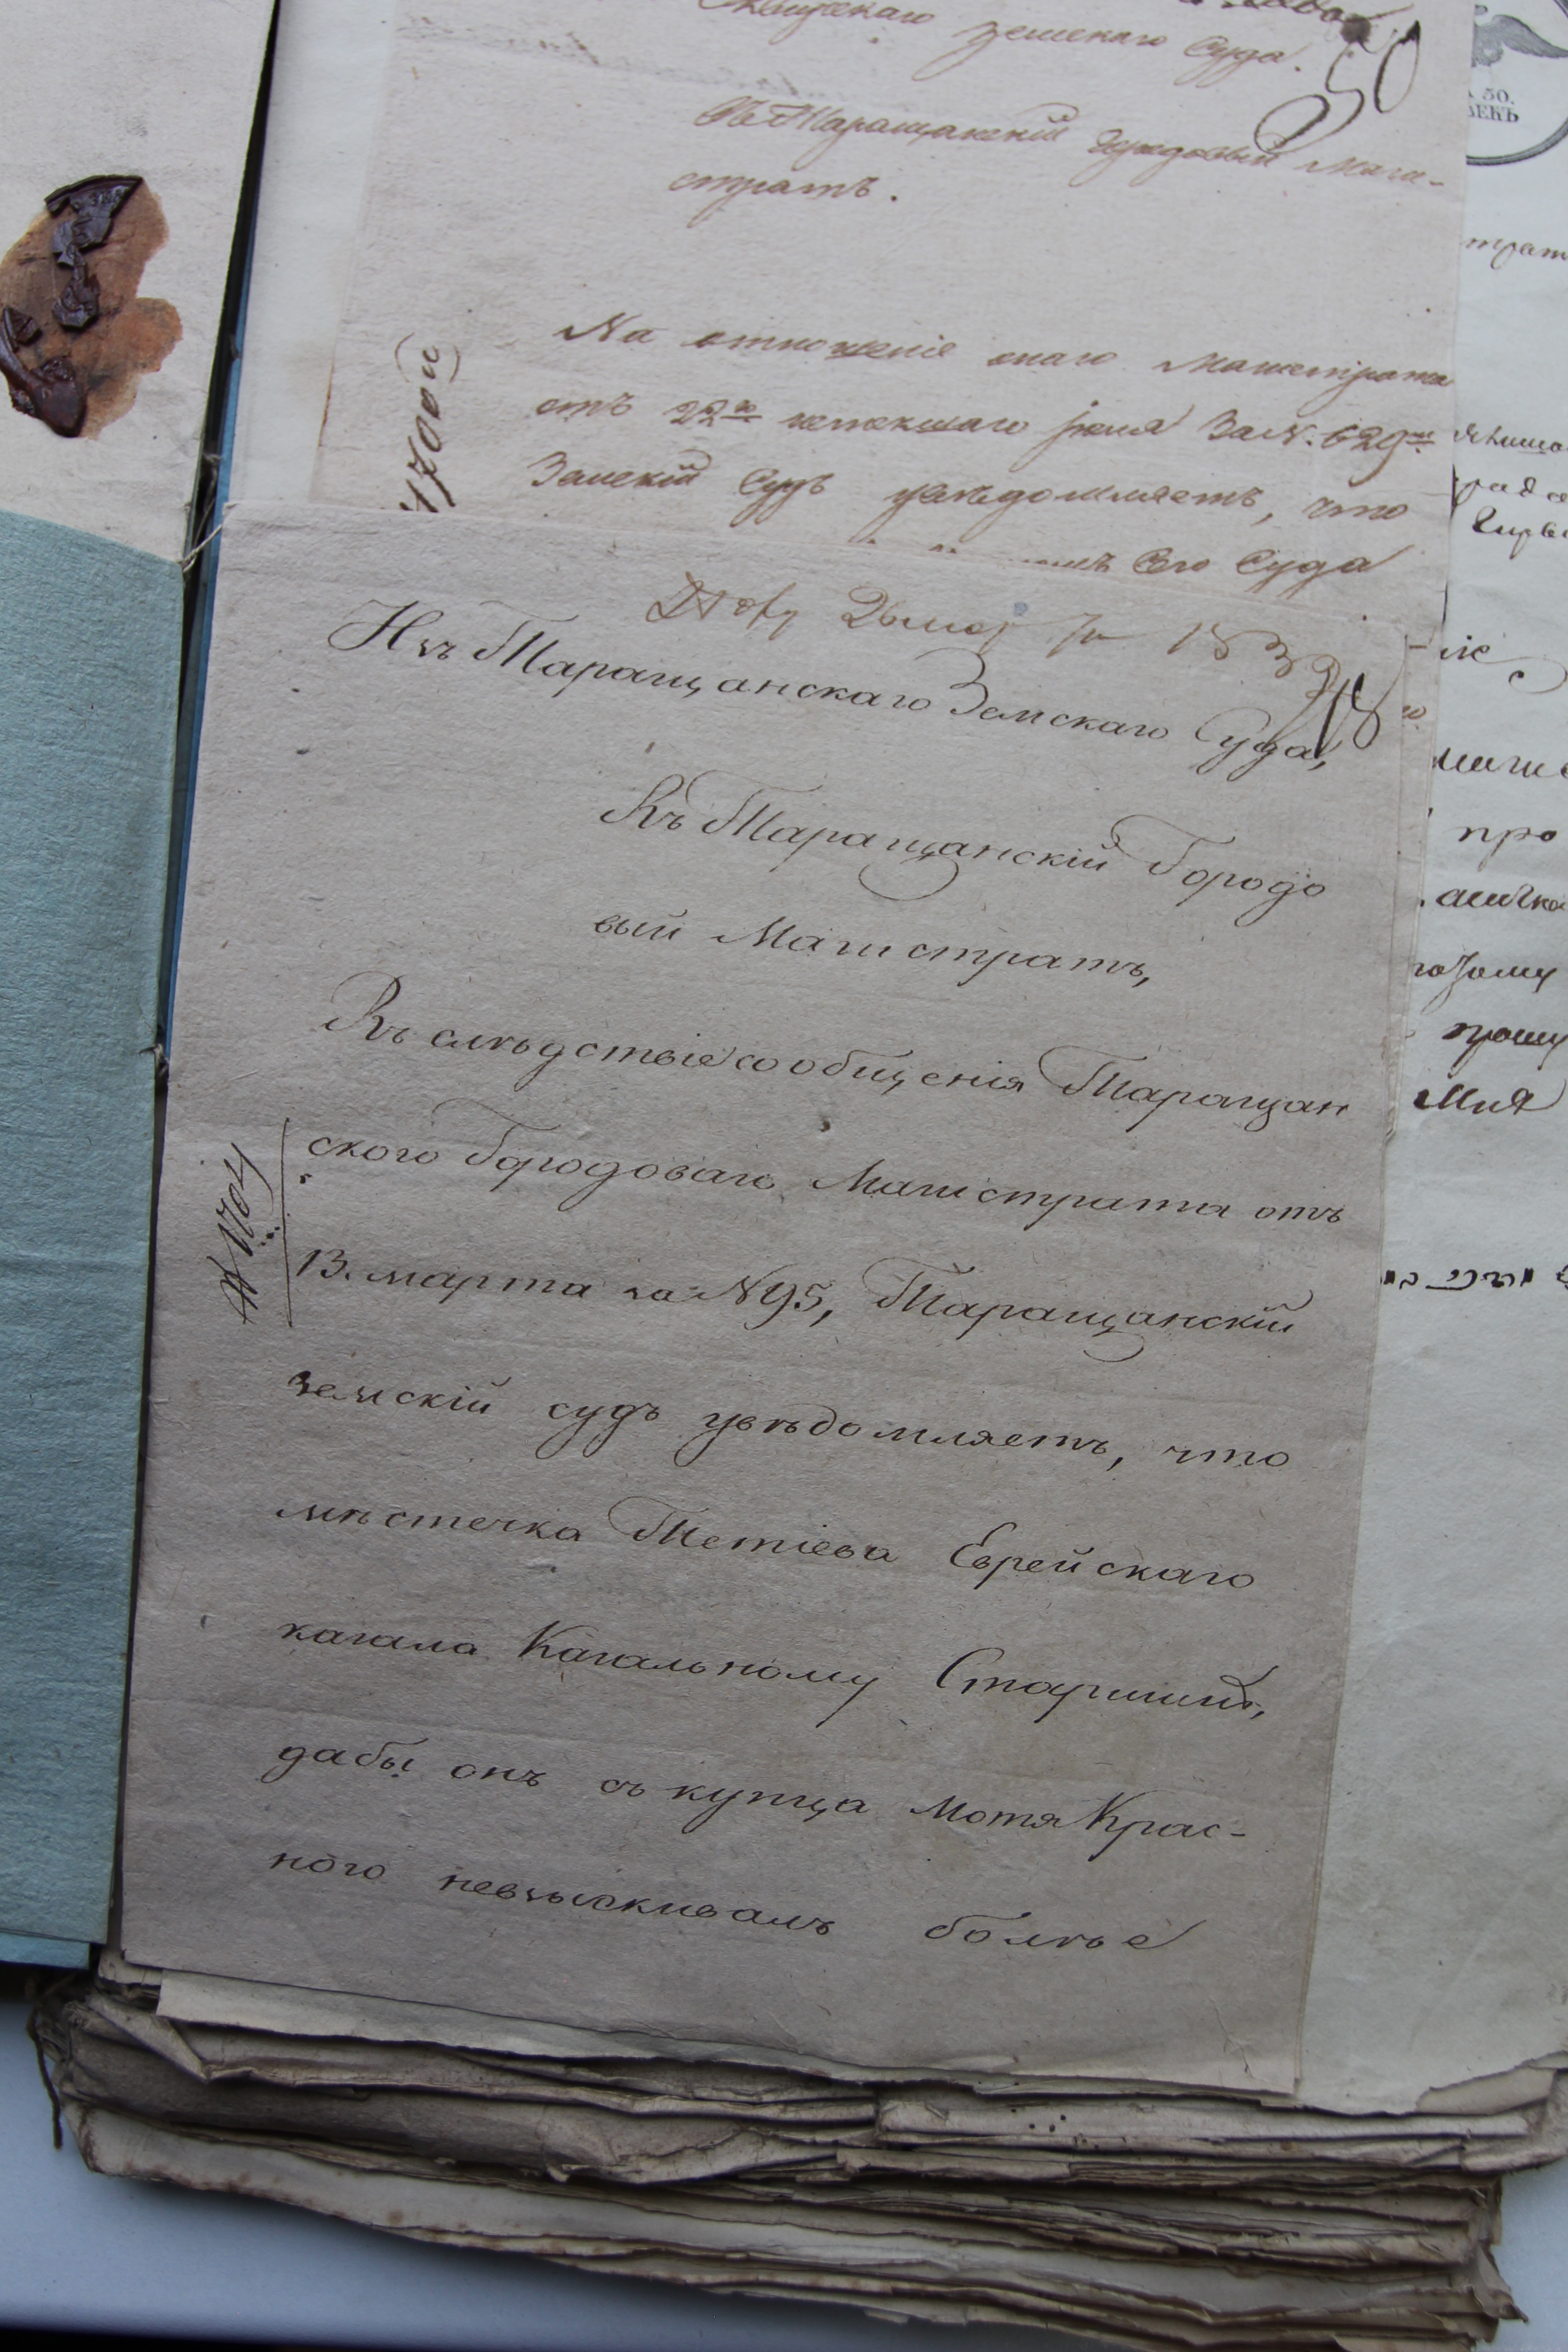 земскаго Суда.
50
Въ Таращанскій Городовый Маги-
стратъ.
На отношеніе онаго Магистрата
отъ 22го истекшаго Іюля За N. 629мъ
Земскій Судъ увѣдомляетъ, что
Сего Суда
183
Изъ Таращанскаго Земскаго Суда,
Въ Таращанскій Городо
вый Магистратъ,
Въ слѣдствіе сообщенія Таращан
ского Городоваго Магистрата отъ
13. марта за N 95, Таращанскій
земскій судъ увѣдомляетъ, что
мѣстечка Тетіева Еврейскаго
кагала Кагальному Старшинѣ,
дабы онъ съ купца Мотя Крас-
ного невзыскивалъ болѣе
трат
про
прошу
мня